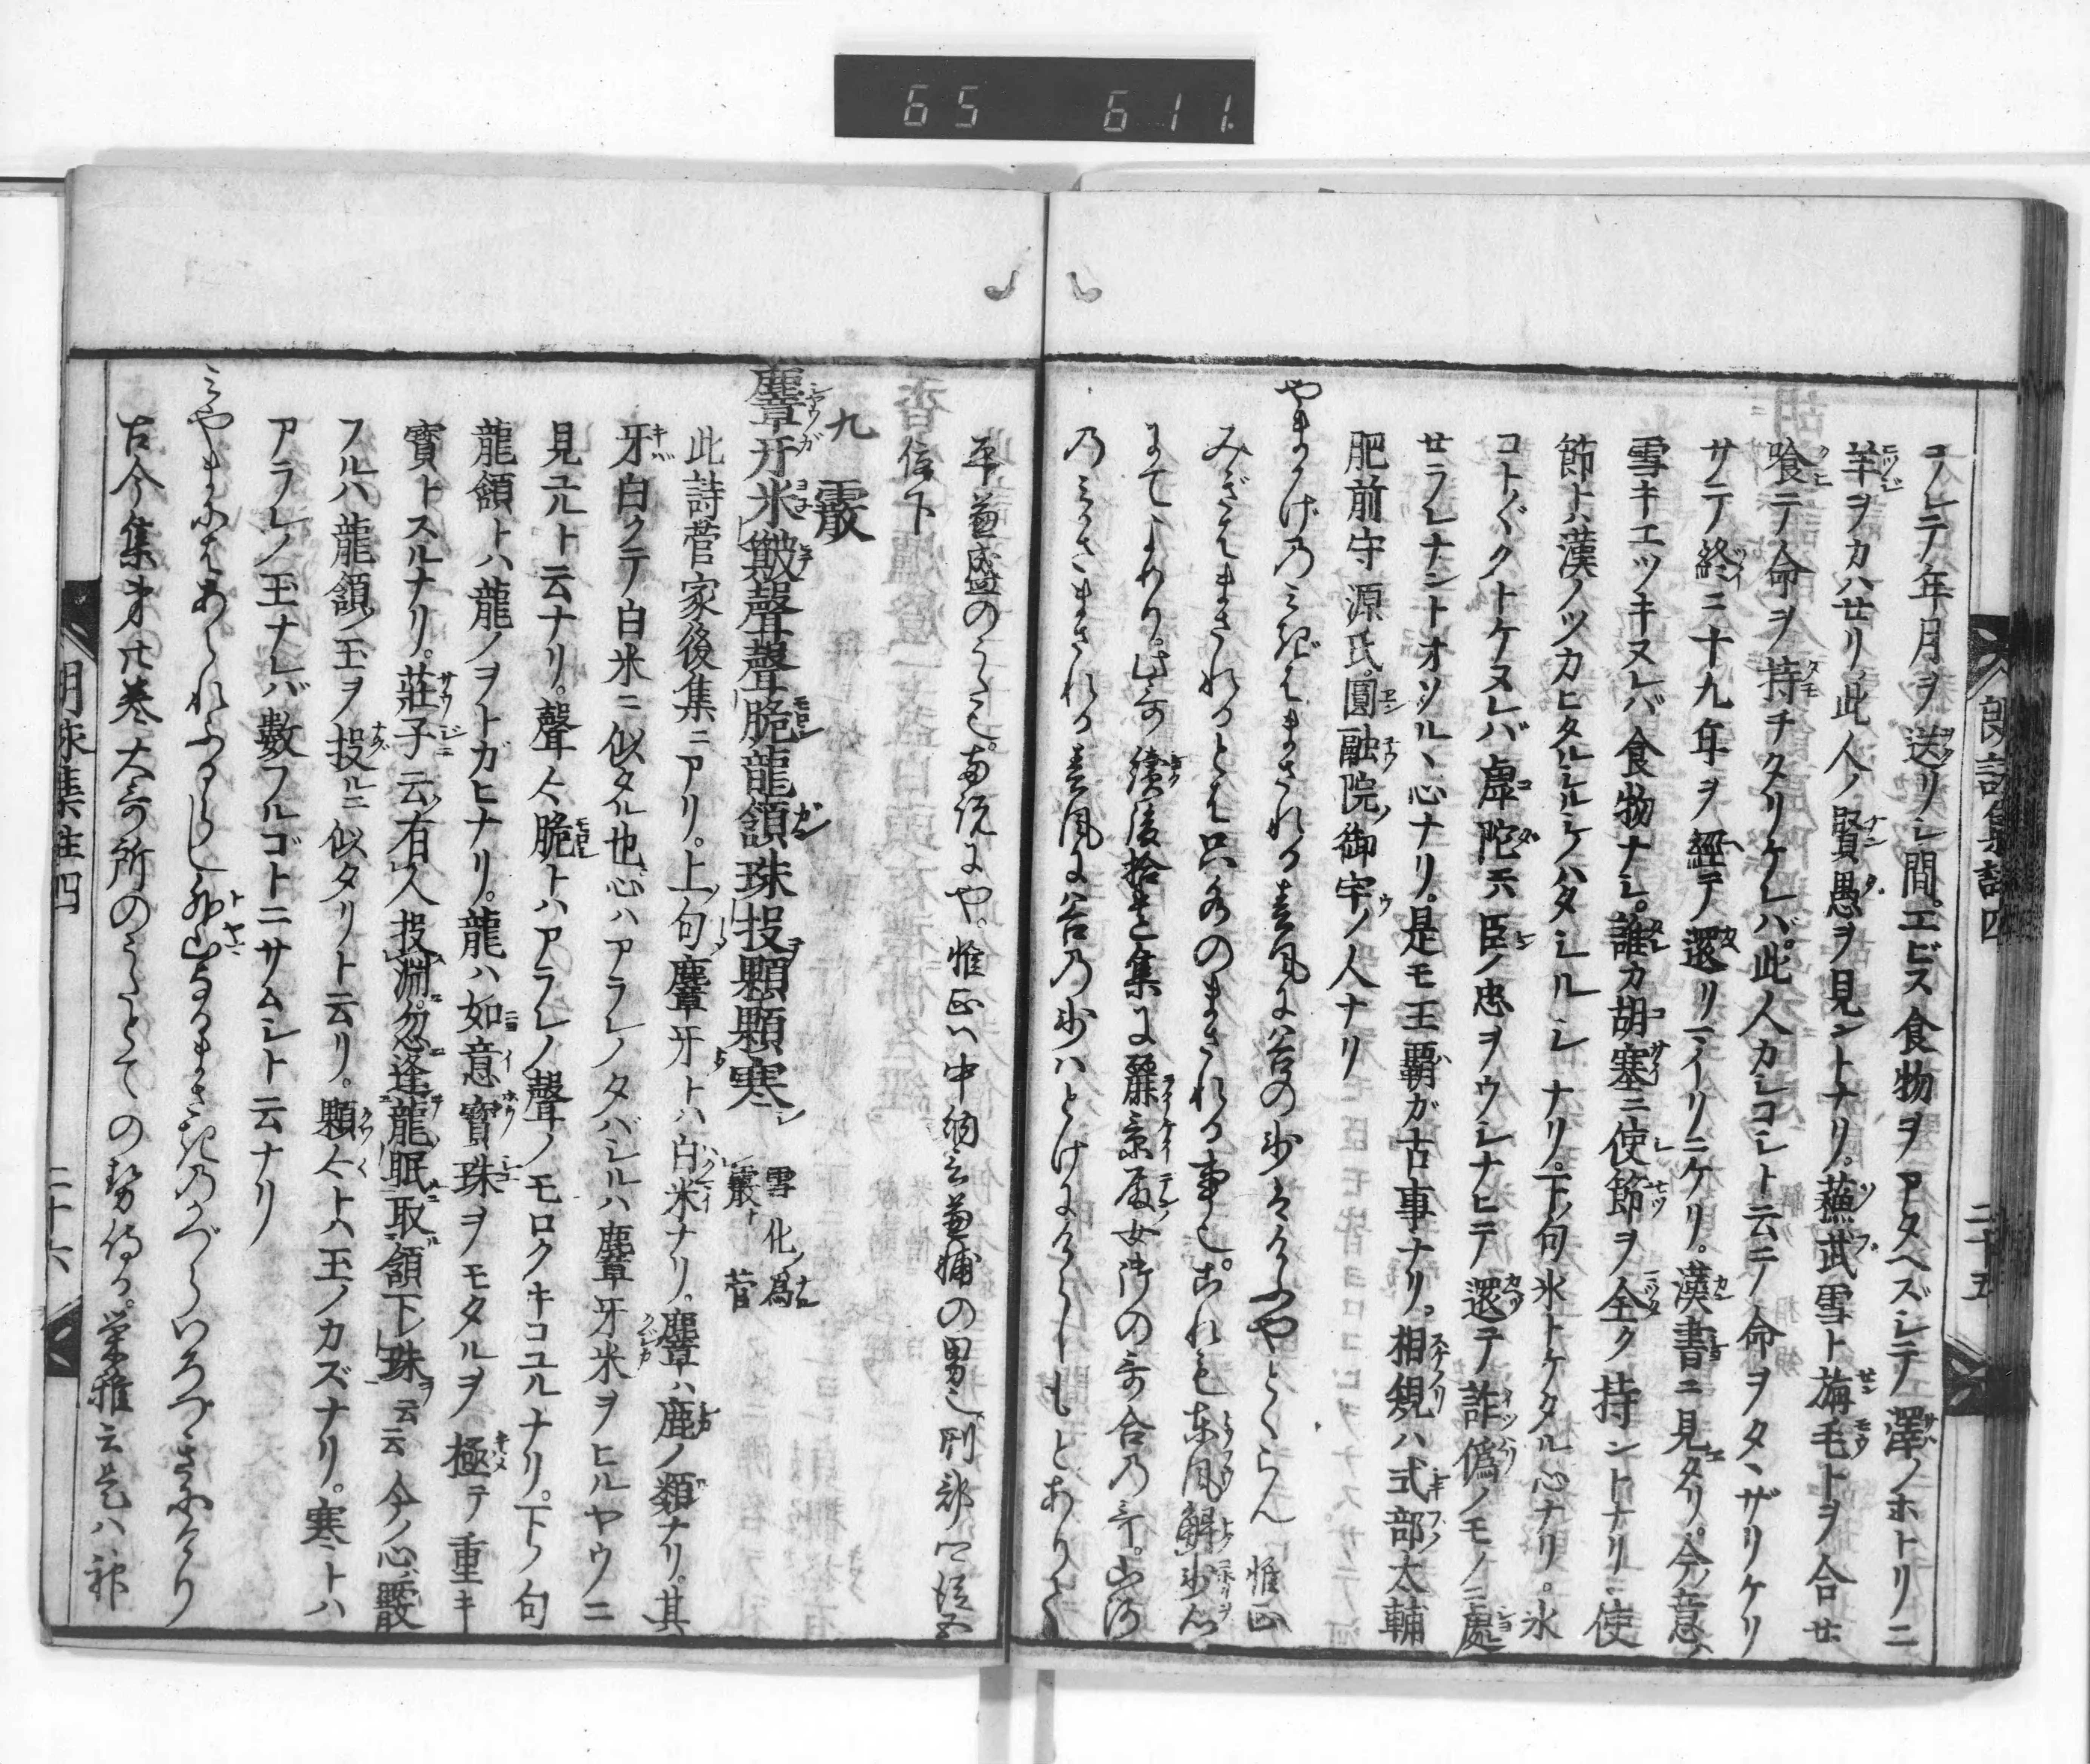 65 611.
朗詠集註四
二十五
コノレテ年月ヲ送リシ間。エビス食物ヲアタヘズシテ澤ノホトリニ
羊ヲカハせリ。此人ノ賢愚ヲ見ントナリ。蘓武雪ト旃毛トヲ合せ
喰テ命ヲ持チタリケレバ。此人カシコシト云テノ命ヲタヽザリケリ
サテ終ニ十九年ヲ經テ還リマイリニケリ。漢書ニ見タリ。今ノ意ハ
雪キエツキヌレバ食物ナシ。誰カ胡塞ニ使節ヲ全ク持ントナリ。使
節トハ漢ノツカヒタルシルシノハタシルシナリ。下句氷トケタル心ナリ。氷
コト〲クトケヌレバ虚陀モ臣ノ忠ヲウシナヒテ還テ詐偽ノモノニ處
せラレナントオソルヽ心ナリ。是モ王覇ガ古事ナリ。相規ハ式部太輔
肥前守源氏。圓融院ノ御宇ノ人ナリ
やまかげのみぎはまされる春風に谷の氷はけふやとくらん 惟正
みぎはまされるとは只水のまされる事也。これも東風解氷の心
にてよめり。此哥續後拾遺集に麗景殿女御の哥合の哥。山河
のみぎはまされる春風に谷の氷はとけにけらしもとありて
平兼盛のうた也。両説にや。惟正ハ中納言兼輔の男也。刑部少輔従五
位下
九 霰
麞牙米簸聲聲脆龍頷珠投顆顆寒 雪化爲霰 菅
此詩菅家後集ニアリ。上ノ句麞牙トハ白米ナリ。麞ハ鹿ノ類ナリ。其
牙白クテ白米ニ似タル也。心ハアラレノタバシルハ麞牙米ヲヒルヤウニ
見ユルト云ナリ。聲〻脆トハアラレノ聲ノモロクキコユルナリ。下ノ句
龍頷トハ龍ノヲトガヒナリ。龍ハ如意寳珠ヲモタルヲ極テ重キ
寳トスルナリ。莊子云有人投淵忽逢龍眠取頷下珠云云 今ノ心ハ霰
フルハ龍頷ノ玉ヲ投ルニ似タリト云リ。顆〻トハ玉ノカズナリ。寒トハ
アラレノ玉ナレバ數フルゴトニサムシト云ナリ
みやまにはあられふるらし外山なるまさ木のかづらいろづきにけり
古今集第廿巻大哥所のうたとての哥侍る。栄雅云是ハ神
朗詠集註四
二十六